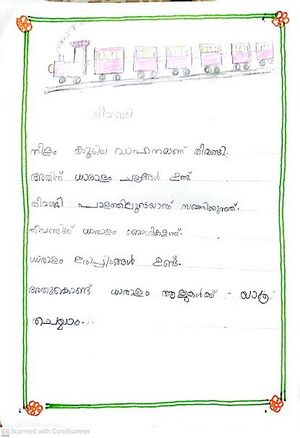 തീവണ്ടി
നീളം കൂടിയ വാഹനമാണ് തീവണ്ടി.
അതിന് ധാരാളം ചക്രങ്ങൾ ഉണ്ട്
തീവണ്ടി പാളത്തിലൂടെയാണ് സഞ്ചരിക്കുന്നത്.
തീവണ്ടിക്ക് ധാരാളം ബോഗികളുണ്ട്.
ധാരാളം ഇരിപ്പിടങ്ങൾ ഉണ്ട്.
അതുകൊണ്ട് ധാരാളം ആളുകൾക്ക് യാത്ര
ചെയ്യാം.
Scanned with CamScanner